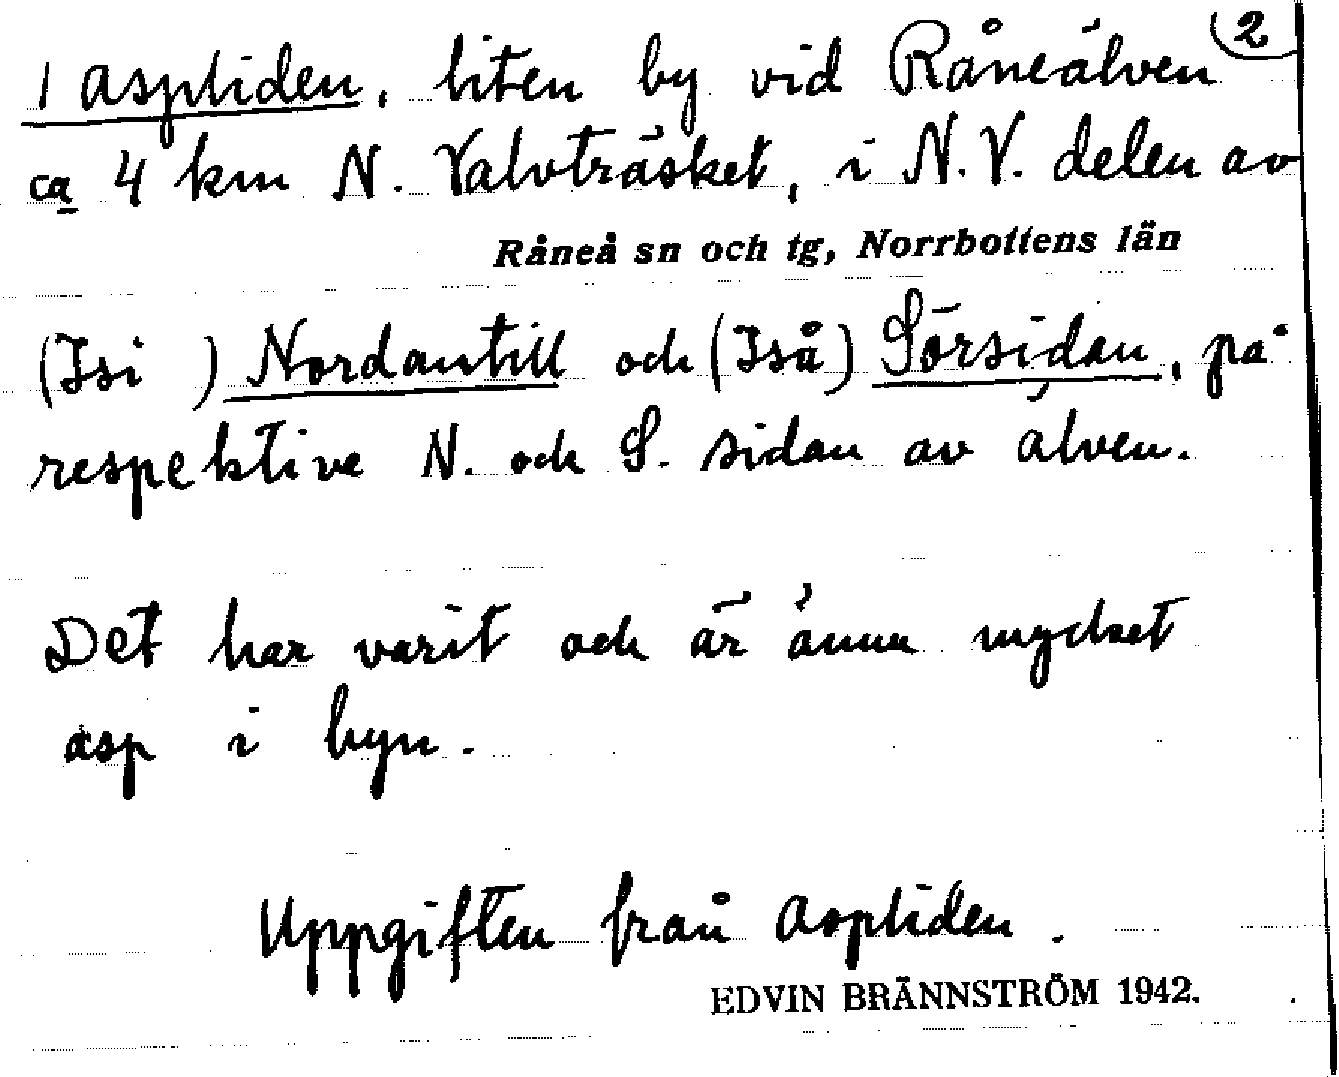 2
1 Aspliden, liten by vid Råneälven
ca 4 km N. Valvträsket, i N.V. delen av
Råneå sn och tg, Norrbottens län
(Isi ) Nordantill och (Iså) Sörsidan, på
respektive N. och S. sidan av älven.
Det har varit och är ännu mycket
asp i byn.
Uppgiften från Aspliden.
EDVIN BRÄNNSTRÖM 1942.